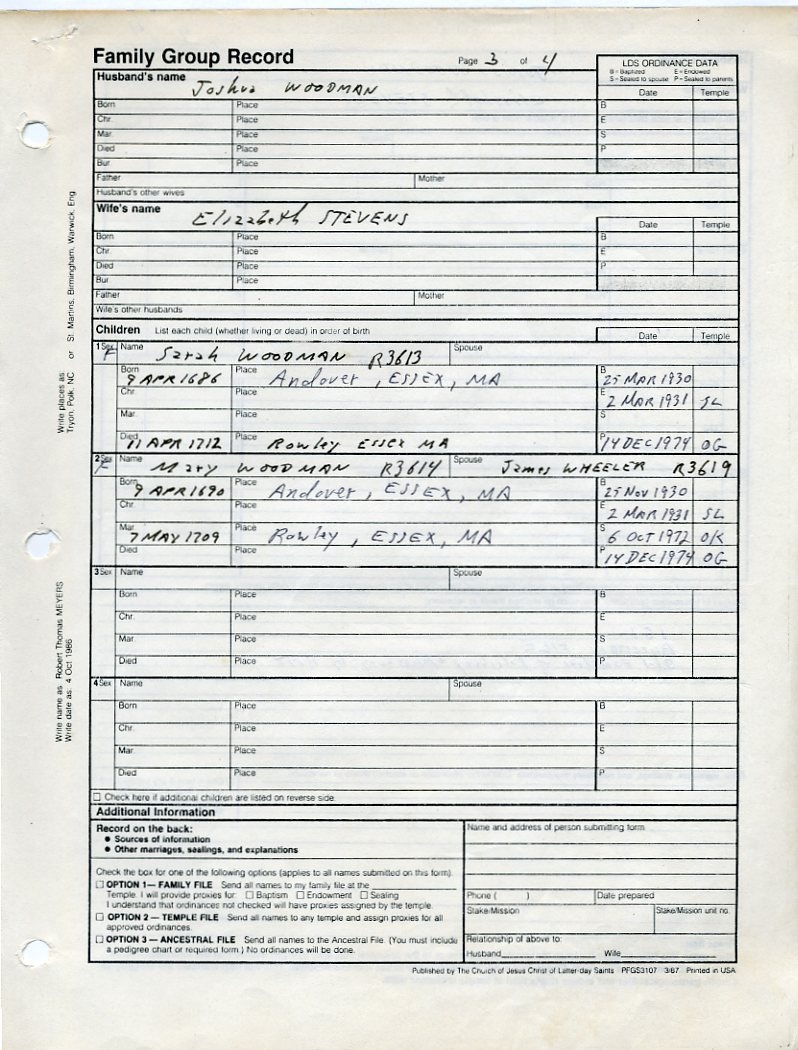 Family Group Record Page 3 of 4
LDS ORDINANCE DATA
B = Baptized E = Endowed
S = Sealed to spouse P = Sealed to parents
Husband's name Joshua WOODMAN
Date Temple
Born Place B
Chr. Place E
Mar. Place S
Died Place P
Bur. Place
Father Mother
Husband's other wives
Wife's name Elizabeth STEVENS
Date Temple
Born Place B
Chr. Place E
Died Place P
Bur. Place
Father Mother
Wife's other husbands
Children List each child (whether living or dead) in order of birth Date Temple
1 Sex F Name Sarah WOODMAN R3613 Spouse
Born 9 APR 1686 Place Andover, ESSEX, MA B 25 MAR 1930
Chr. Place E 2 MAR 1931 SL
Mar. Place S
Died 11 APR 1712 Place Rowley ESSEX MA P 14 DEC 1974 OG
2 Sex F Name Mary WOODMAN R3614 Spouse James WHEELER R3619
Born 9 APR 1690 Place Andover, ESSEX, MA B 25 NOV 1930
Chr. Place E 2 MAR 1931 SL
Mar. 7 MAY 1709 Place Rowley, ESSEX, MA S 6 OCT 1972 OK
Died Place P 14 DEC 1974 OG
3 Sex Name Spouse
Born Place B
Chr. Place E
Mar. Place S
Died Place P
4 Sex Name Spouse
Born Place B
Chr. Place E
Mar. Place S
Died Place P
☐ Check here if additional children are listed on reverse side
Additional Information
Record on the back:
• Sources of information
• Other marriages, sealings, and explanations
Check the box for one of the following options (applies to all names submitted on this form).
☐ OPTION 1— FAMILY FILE Send all names to my family file at the
Temple. I will provide proxies for: ☐ Baptism ☐ Endowment ☐ Sealing
I understand that ordinances not checked will have proxies assigned by the temple.
☐ OPTION 2 — TEMPLE FILE Send all names to any temple and assign proxies for all
approved ordinances.
☐ OPTION 3 — ANCESTRAL FILE Send all names to the Ancestral File. (You must include
a pedigree chart or required form.) No ordinances will be done.
Name and address of person submitting form
Phone ( ) Date prepared
Stake/Mission Stake/Mission unit no.
Relationship of above to:
Husband Wife
Published by The Church of Jesus Christ of Latter-day Saints PFGS3107 3/87 Printed in USA
Write places as: Tryon, Polk, NC or St. Martins, Birmingham, Warwick, Eng
Write name as: Robert Thomas MEYERS
Write date as: 4 Oct 1986